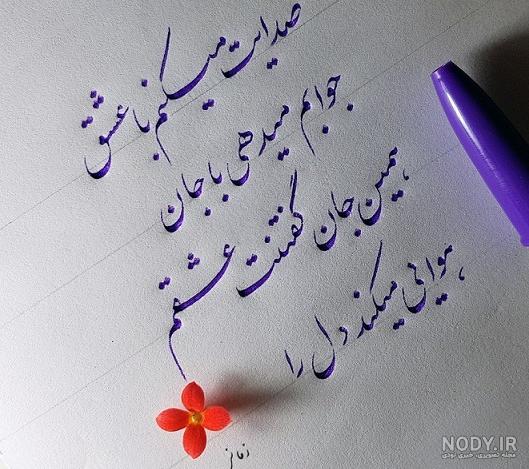 صدایت میکنم با عشق
جوابم میدهی با جان
همین جان گفتنت عشقم
هوایی میکند دل را
NODY.IR
مجله تصویری، خبری نودی